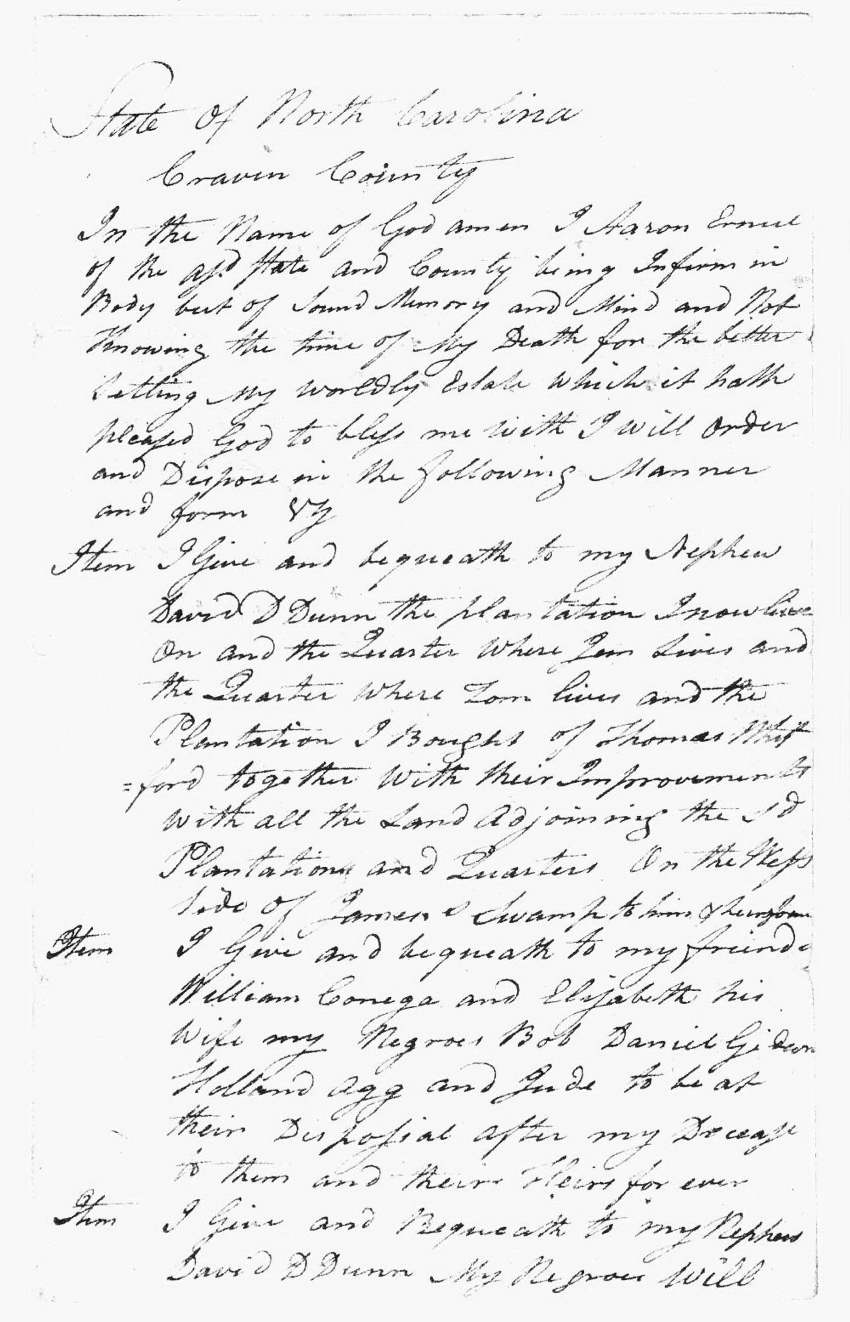 State of North Carolina
Craven County
In the Name of God amen I Aaron Ernul
of the afsd State and County being Infirm in
Body but of Sound Memory and Mind and Not
Knowing the time of My Death for the better
Setling My worldly Estate which it hath
pleased God to bless me with I will Order
and Dispose in the following Manner
and form
Item I Give and bequeath to my Nephew
David D Dunn the plantation I now live
On and the Quarter Where Jem Lives and
the Quarter Where Tom lives and the
Plantation I Bought of Thomas Whit
=ford together With their Improvements
With all the Land Adjoining the Sd
Plantations and Quarters On the West
Side of James's Swamp to him &
Item I Give and bequeath to my friends
William Conega and Elizabeth his
Wife my Negroes Bob Daniel Gideon
Holland Agg and Jude to be at
their Disposial after my Decease
to them and their Heirs for ever
Item I Give and Bequeath to my Nephew
David D Dunn My Negroes Will